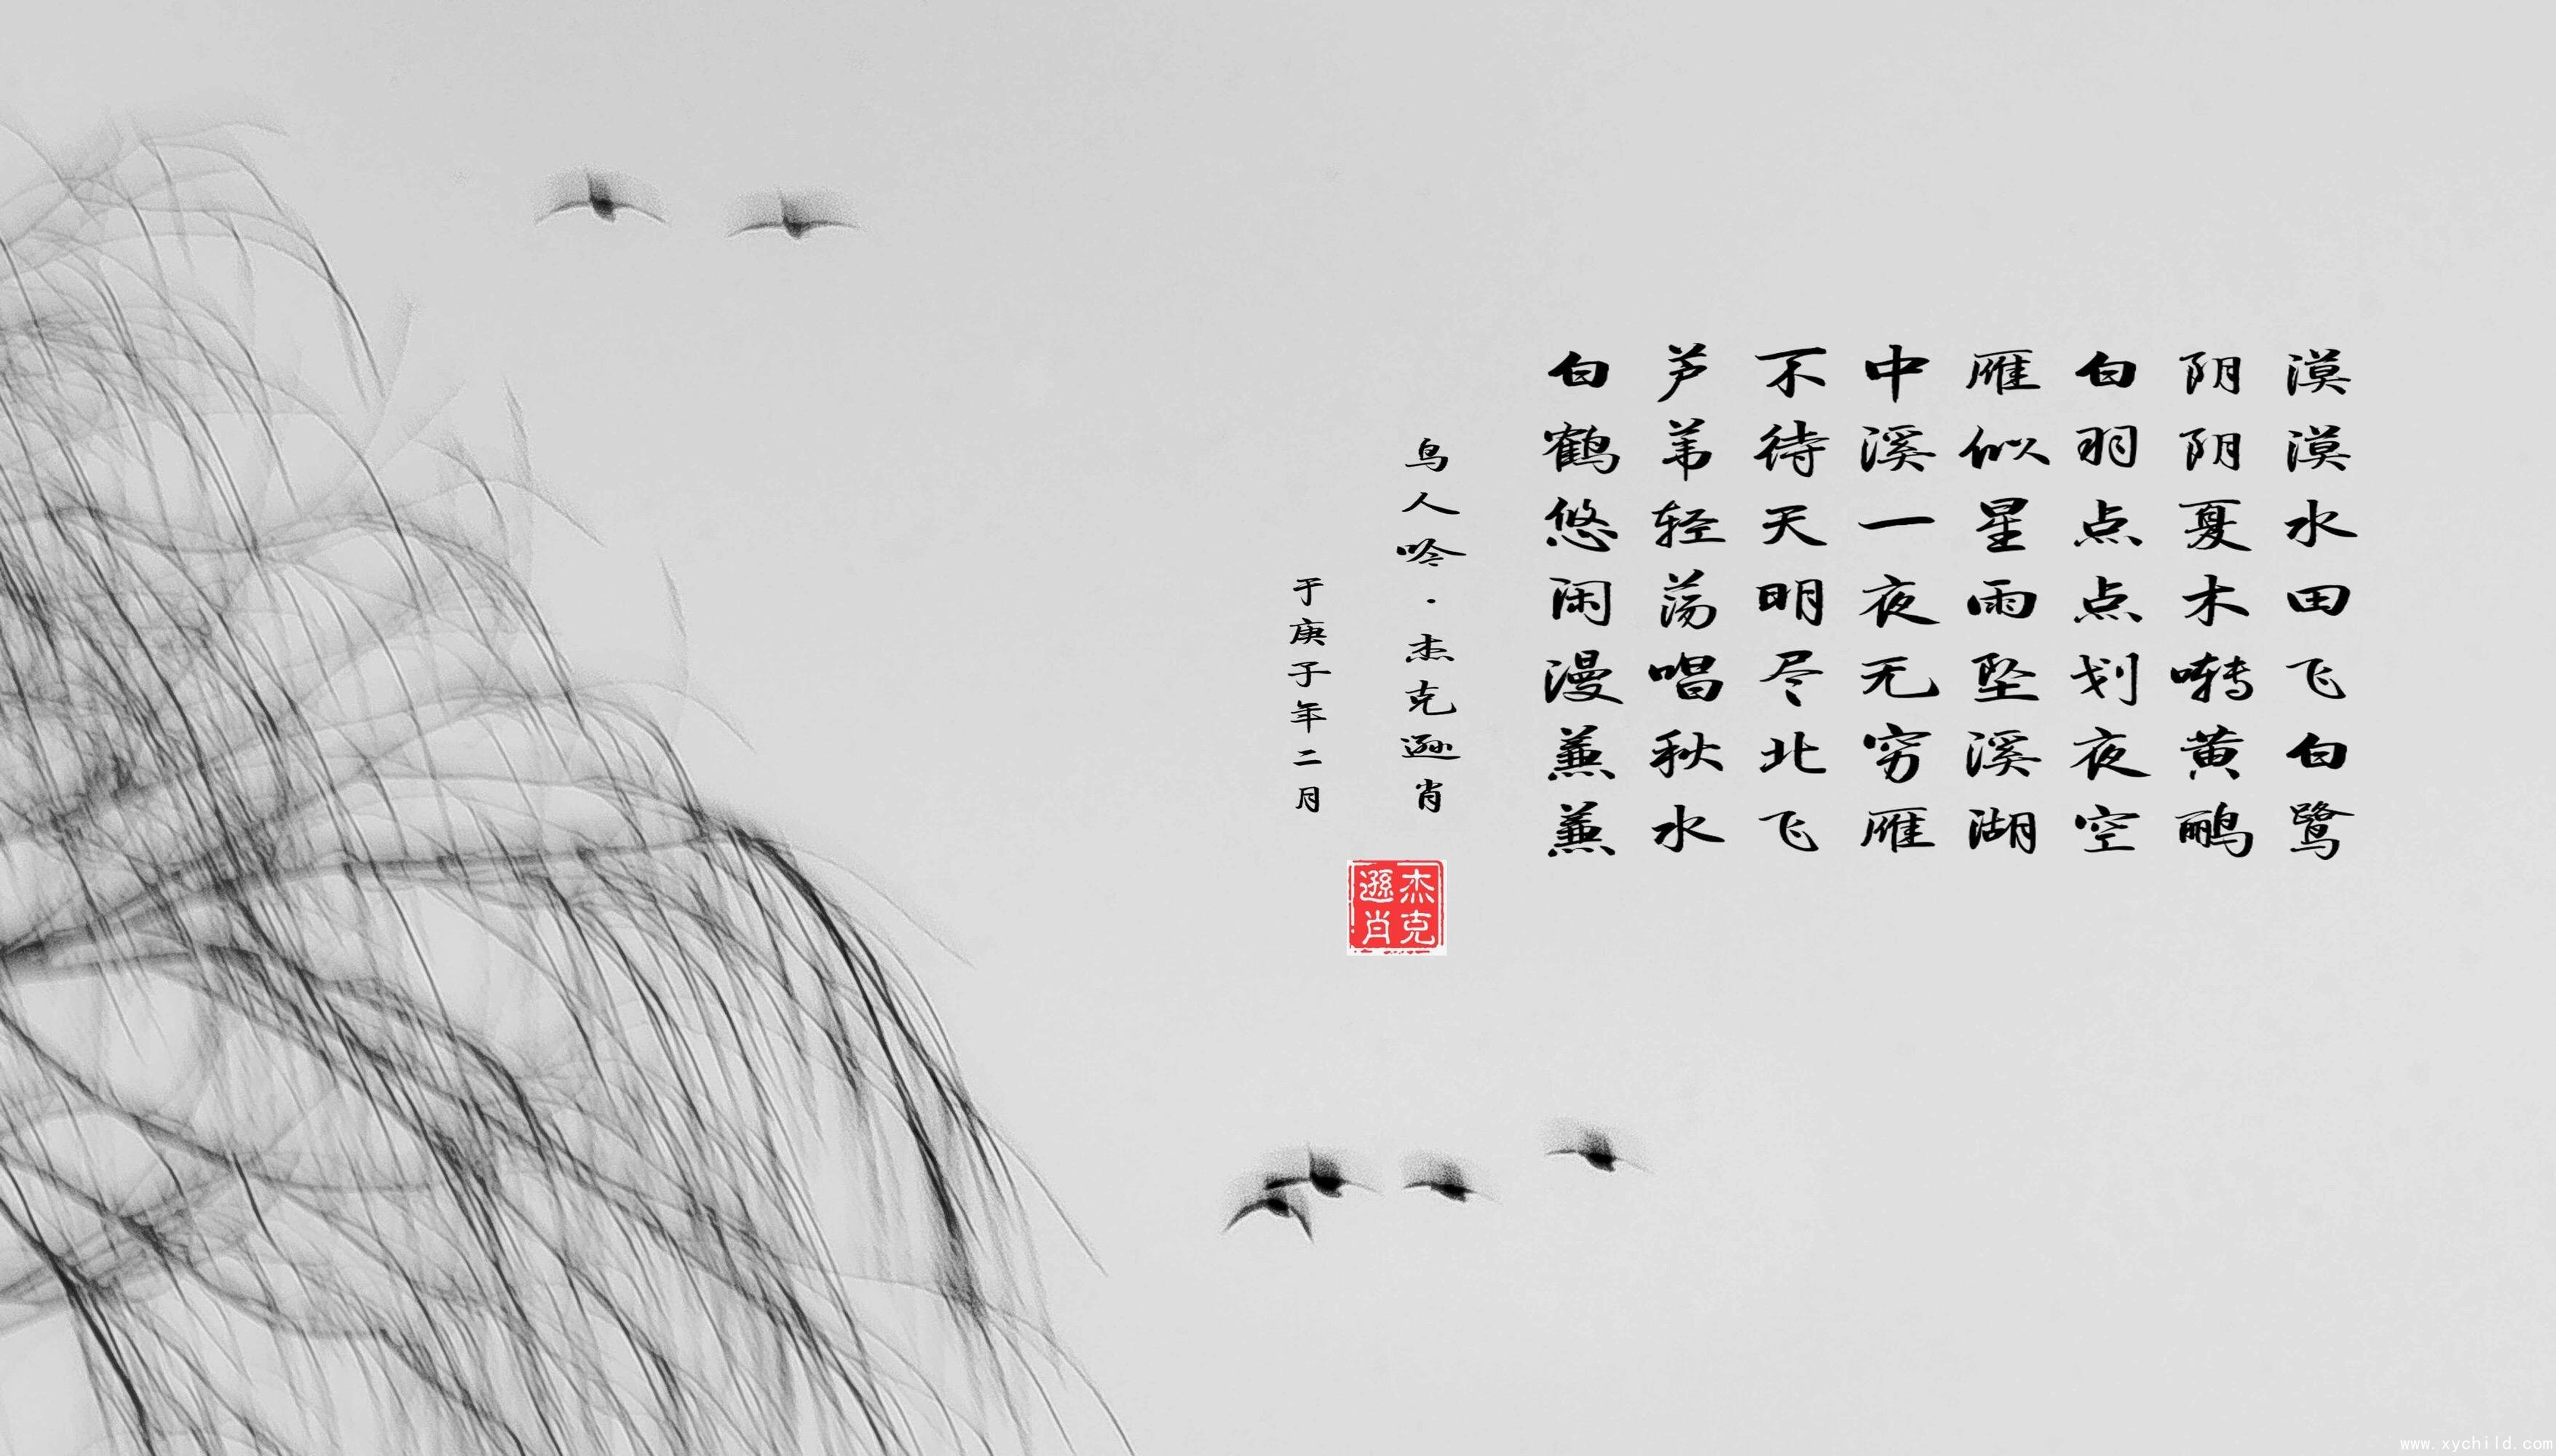 漠漠水田飞白鹭
阴阴夏木啭黄鹂
白羽点点划夜空
雁似星雨坠溪湖
中溪一夜无穷雁
不待天明尽北飞
芦苇轻荡唱秋水
白鹤悠闲漫蒹蒹
鸟人吟·杰克逊肖
于庚子年二月
杰克逊肖
www.xychild.com